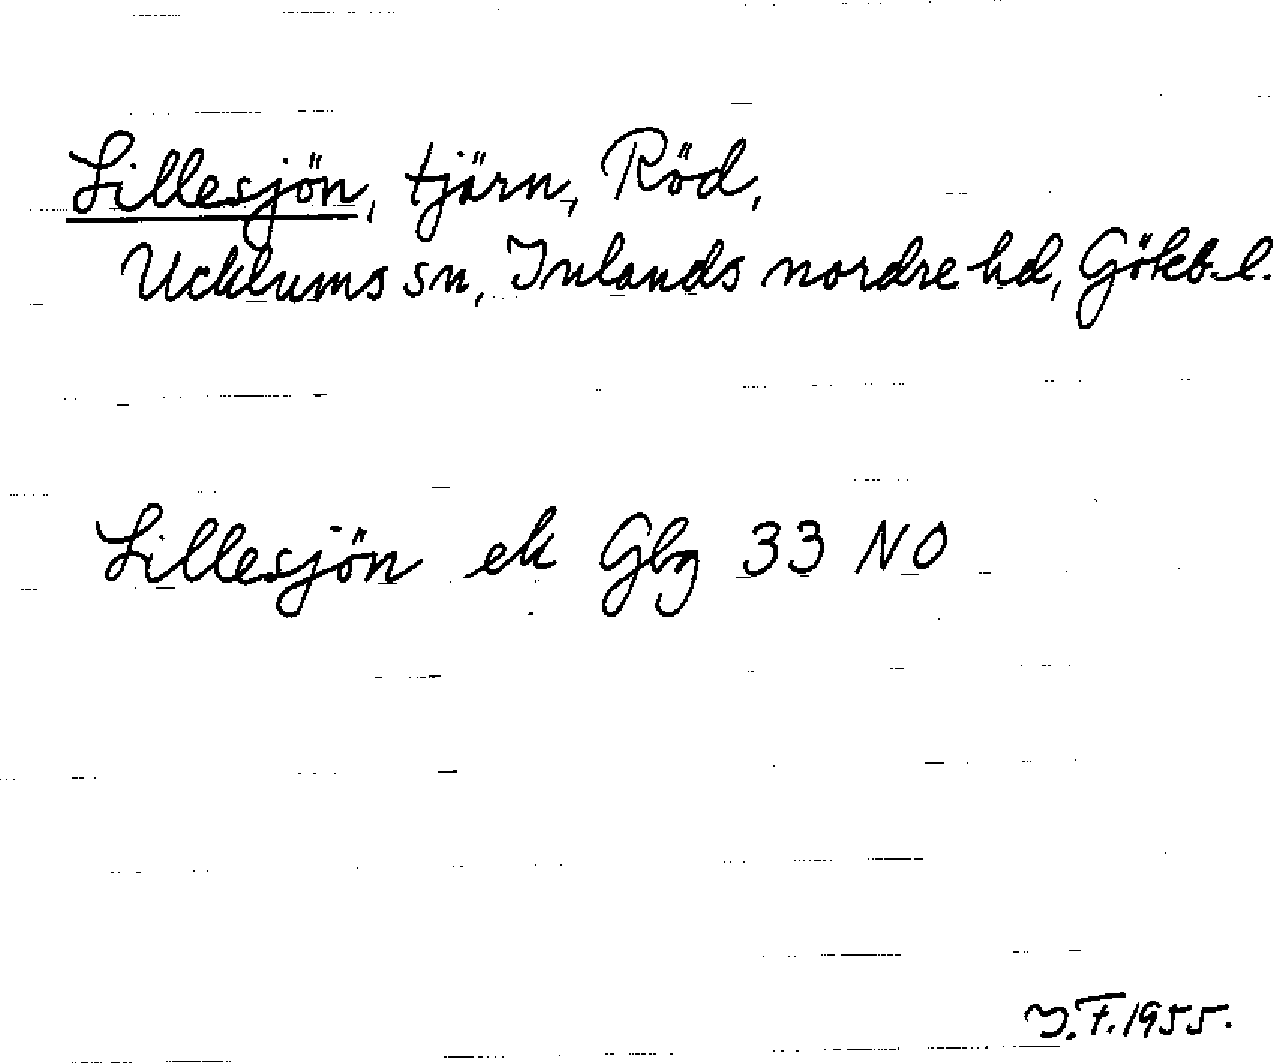 Lillesjön, tjärn, Röd,
Ucklums sn, Inlands nordre hd, Gökb. l.
Lillesjön ek Gbg 33 NO
I.F. 1955.